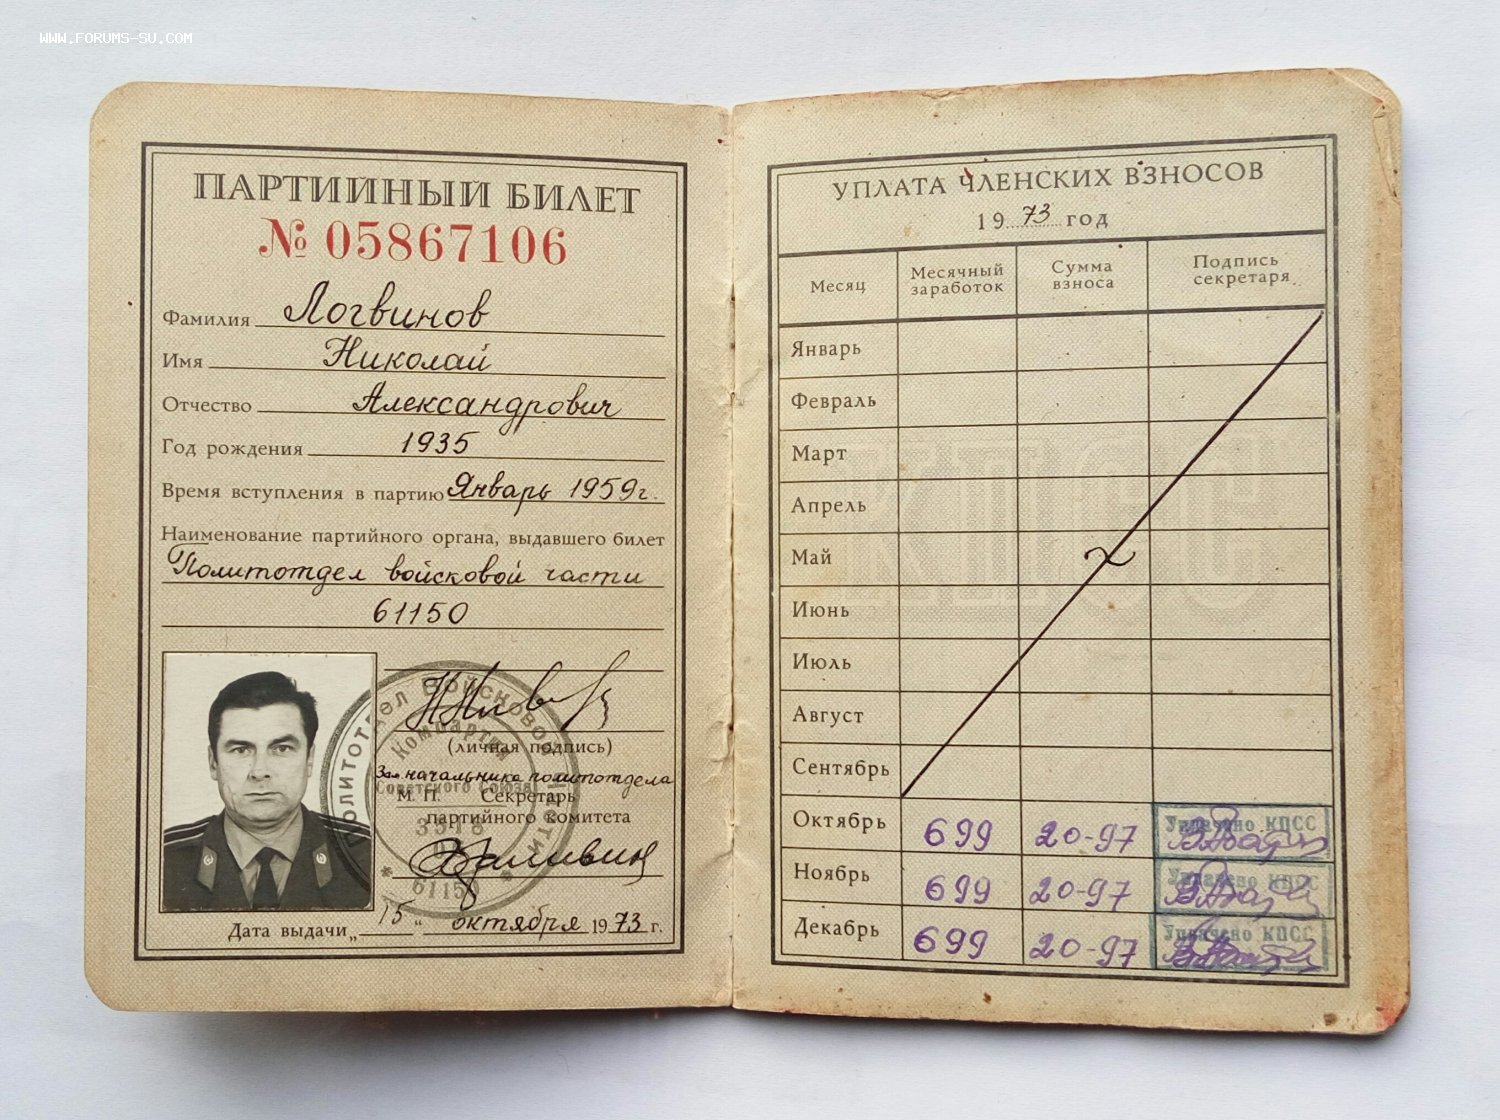 WWW.FORUMS-SU.COM
ПАРТИЙНЫЙ БИЛЕТ
№ 05867106
Фамилия Логвинов
Имя Николай
Отчество Александрович
Год рождения 1935
Время вступления в партию Январь 1959г.
Наименование партийного органа, выдавшего билет
Политотдел войсковой части
61150
Политотдел войсковой части
Компартия
Советского Союза
3518
61150
(личная подпись)
Зам. начальника политотдела
М. П. Секретарь
партийного комитета
Дата выдачи „15“ октября 1973 г.
УПЛАТА ЧЛЕНСКИХ ВЗНОСОВ
1973 год
Месяц Месячный заработок Сумма взноса Подпись секретаря
Январь
Февраль
Март
Апрель
Май
Июнь
Июль
Август
Сентябрь
Октябрь 699 20-97 Уплачено КПСС
Ноябрь 699 20-97 Уплачено КПСС
Декабрь 699 20-97 Уплачено КПСС